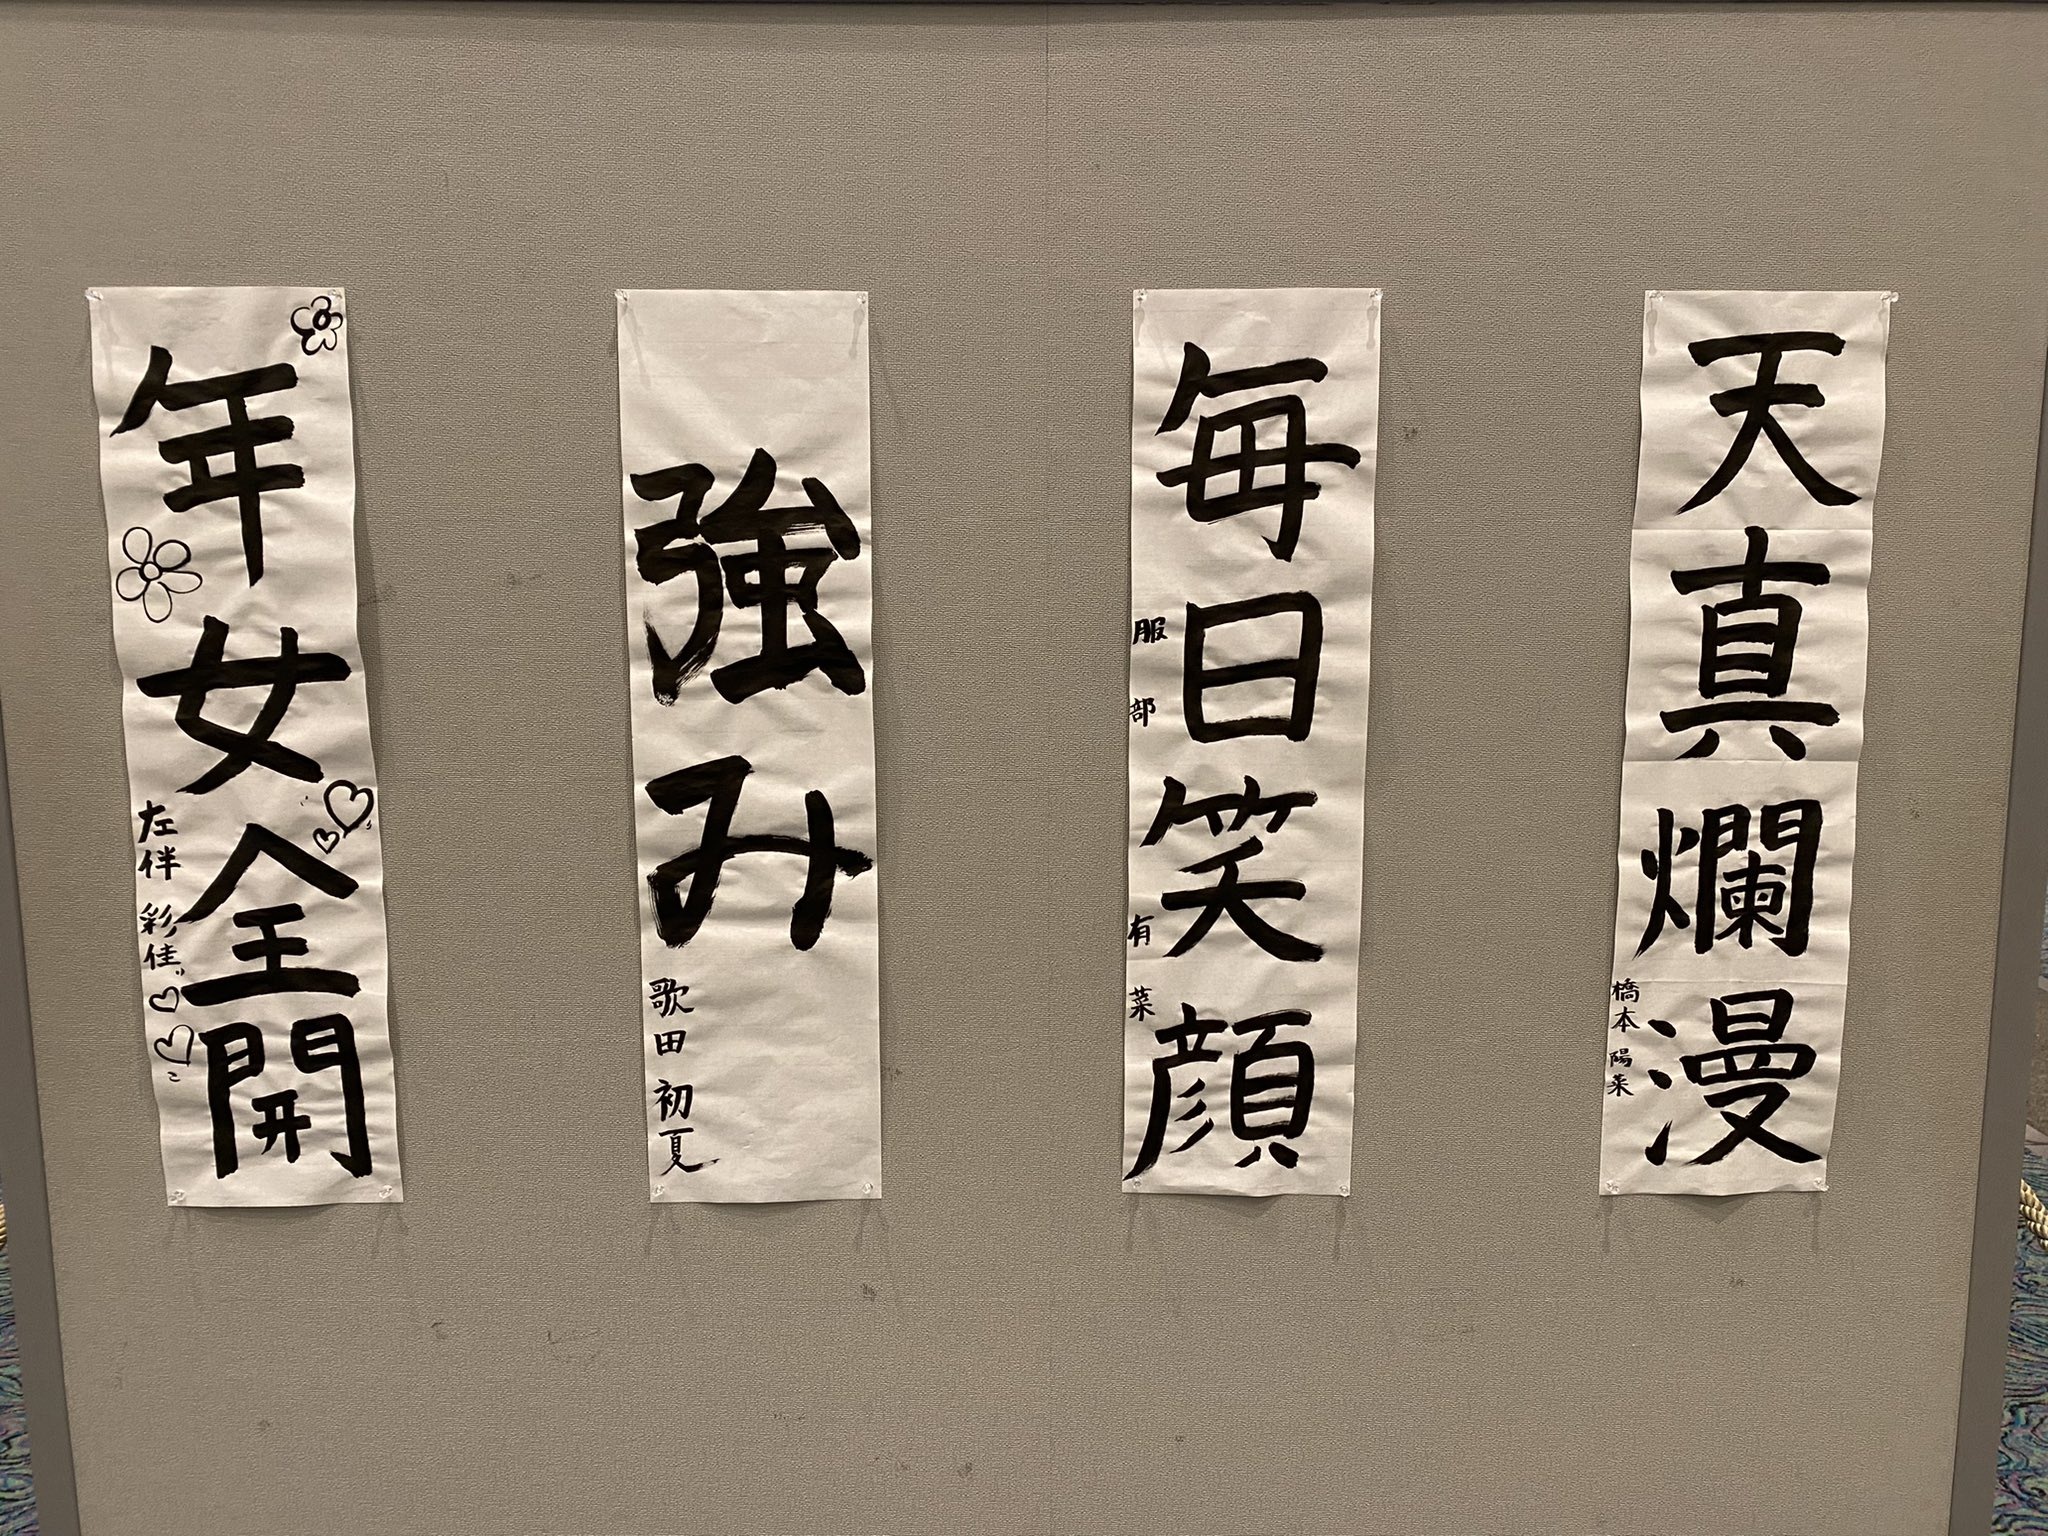 天真爛漫
橋本陽菜
毎日笑顔
服部有菜
強み
歌田初夏
年女全開
左伴彩佳